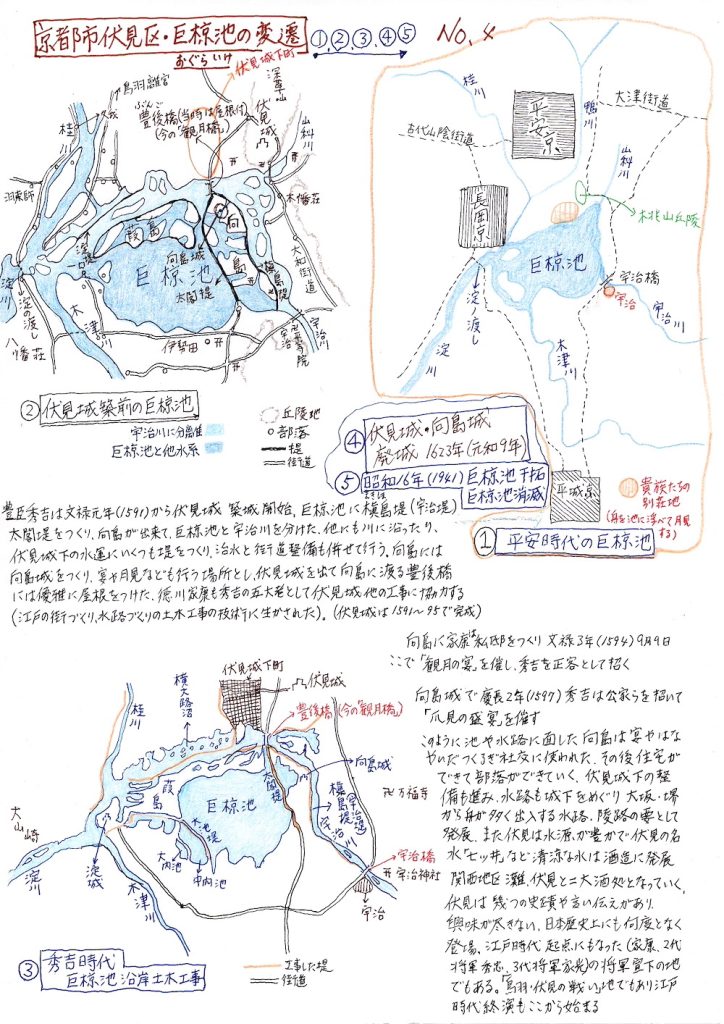 京都市伏見区・巨椋池の変遷
おぐらいけ
①,②,③,④⑤
No, 4
鳥羽離宮
伏見城下町
ぶんご
豊後橋(当時は屋根付)
(今の「観月橋」)
伏見城
深草山
山科川
桂川
久我
羽束師
木幡荘
葭島
向島
向島城
巨椋池
太閤堤
槇島堤
大和街道
淀川
淀の渡し
木津川
八幡荘
伊勢田
宇治
平等院
宇治川
② 伏見城築前の巨椋池
宇治川に分離後
巨椋池と他水系
丘陵地
部落
堤
街道
桂川
平安京
鴨川
大津街道
古代山陰街道
山科川
長岡京
桃山丘陵
巨椋池
宇治橋
宇治
宇治川
淀ノ渡し
淀川
木津川
平城京
貴族たちの
別荘地
(舟を池に浮べて月見
する)
① 平安時代の巨椋池
④ 伏見城・向島城
廃城 1623年(元和9年)
⑤ 昭和16年(1941)巨椋池干拓
巨椋池消滅
豊臣秀吉は文禄元年(1591)から伏見城 築城開始、巨椋池に槇島堤(宇治堤)
太閤堤をつくり、向島が出来て、巨椋池と宇治川を分けた、他にも川に沿ったり、
伏見城下の水運にいくつも堤をつくり、治水と街道整備も併せて行う、向島には
向島城をつくり、宴や月見なども行う場所とし、伏見城を出て向島に渡る豊後橋
には優雅に屋根をつけた、徳川家康も秀吉の五大老として伏見城他の工事に協力する
(江戸の街づくり、水路づくりの土木工事の技術に生かされた)。(伏見城は1591～95で完成)
向島に家康は私邸をつくり 文禄3年(1594)9月9日
ここで「観月の宴」を催し、秀吉を正客として招く
向島城で慶長2年(1597)秀吉は公家らを招いて
「瓜見の盛宴」を催す
このように池や水路に面した向島は宴やはな
やいだくつろぎ社交に使われた、その後住宅が
できて部落ができていく、伏見城下の整
備も進み、水路も城下をめぐり 大坂・堺
から舟が多く出入する水路、陸路の要として
発展、また伏見は水源が豊かで伏見の名
水「七ッ井」など清涼な水は酒造に発展
関西地区 灘、伏見と二大酒処となっていく、
伏見は 幾つの史蹟や言い伝えがあり、
興味が尽きない、日本歴史上にも何度となく
登場、江戸時代 起点にもなった(家康、2代
将軍秀忠、3代将軍家光)の将軍宣下の地
でもある。「鳥羽・伏見の戦い」地でもあり江戸
時代終演もここから始まる
伏見城下町
伏見城
横大路沼
桂川
豊後橋(今の「観月橋」)
葭島
太閤堤
向島城
巨椋池
槇島堤
宇治川
卍万福寺
大山崎
大池堤
大内池
中内池
淀川
淀城
木津川
宇治橋
宇治神社
宇治
③ 秀吉時代
巨椋池 沿岸土木工事
工事した堤
街道